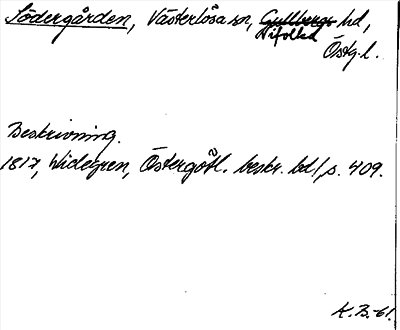 Södergården, Västerlösa sn, Gullbergs hd,
Vifolka
Östg. l.
Beskrivning.
1817, Widegren, Östergötl. beskr. bd 1, s. 409.
K.B.-61.